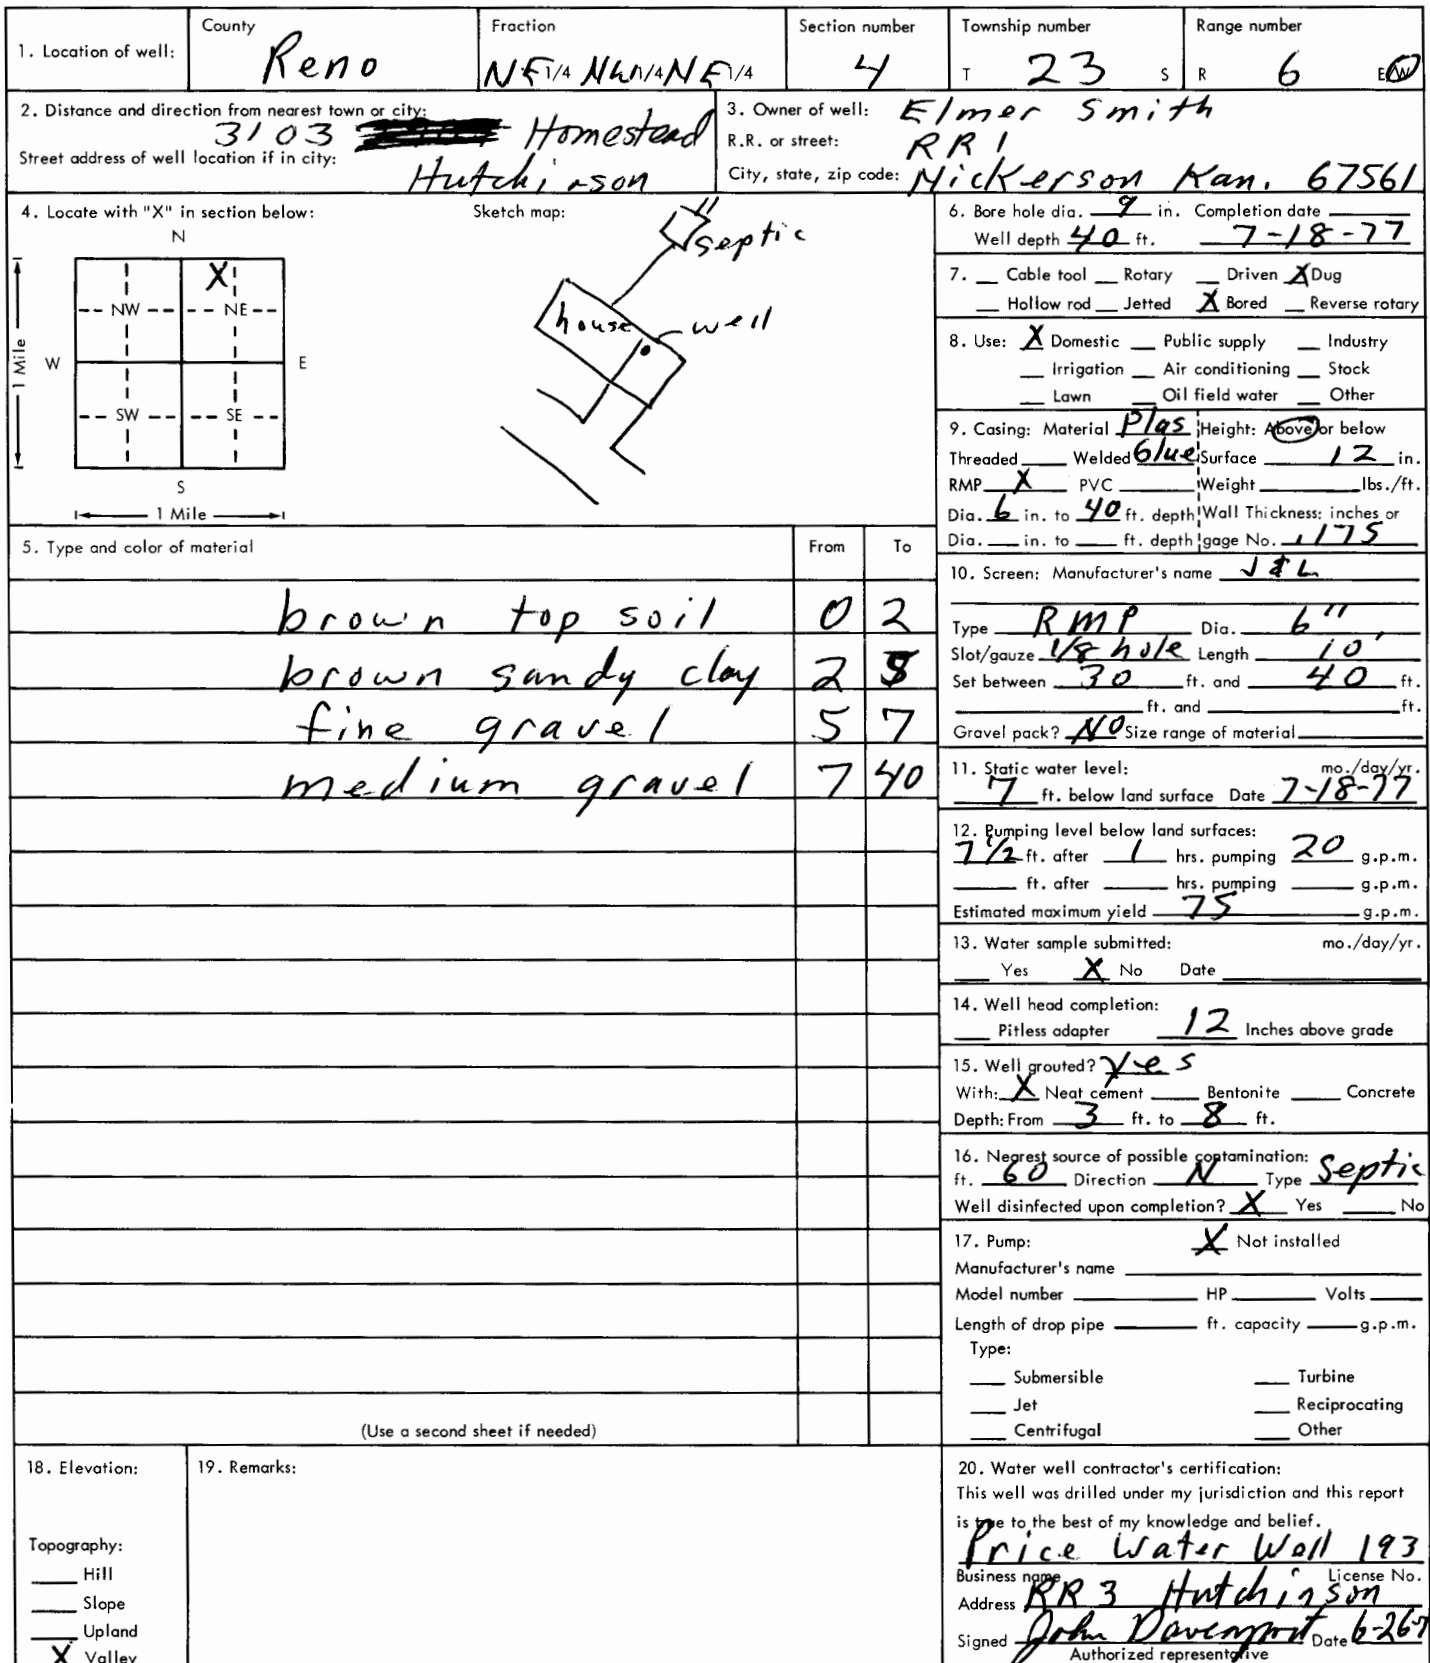 1. Location of well: County Reno Fraction NE 1/4 NW 1/4 NE 1/4 Section number 4 Township number T 23 S Range number R 6 E/W
2. Distance and direction from nearest town or city: 3103 Homestead
Street address of well location if in city: Hutchinson
3. Owner of well: Elmer Smith
R.R. or street: RR1
City, state, zip code: Nickerson Kan. 67561
4. Locate with "X" in section below:
N
X
NW NE
W E
SW SE
S
1 Mile
1 Mile
Sketch map:
septic
house
well
5. Type and color of material From To
brown top soil 0 2
brown sandy clay 2 5
fine gravel 5 7
medium gravel 7 40
(Use a second sheet if needed)
6. Bore hole dia. 9 in. Completion date
Well depth 40 ft. 7-18-77
7. Cable tool Rotary Driven X Dug
Hollow rod Jetted X Bored Reverse rotary
8. Use: X Domestic Public supply Industry
Irrigation Air conditioning Stock
Lawn Oil field water Other
9. Casing: Material Plas Height: Above or below
Threaded Welded Glue Surface 12 in.
RMP X PVC Weight lbs./ft.
Dia. 6 in. to 40 ft. depth Wall Thickness: inches or
Dia. in. to ft. depth gage No. .175
10. Screen: Manufacturer's name J & L
Type RMP Dia. 6"
Slot/gauze 1/8 hole Length 10'
Set between 30 ft. and 40 ft.
ft. and ft.
Gravel pack? NO Size range of material
11. Static water level: mo./day/yr.
7 ft. below land surface Date 7-18-77
12. Pumping level below land surfaces:
7 1/2 ft. after 1 hrs. pumping 20 g.p.m.
ft. after hrs. pumping g.p.m.
Estimated maximum yield 75 g.p.m.
13. Water sample submitted: mo./day/yr.
Yes X No Date
14. Well head completion:
Pitless adapter 12 Inches above grade
15. Well grouted? yes
With: X Neat cement Bentonite Concrete
Depth: From 3 ft. to 8 ft.
16. Nearest source of possible contamination:
ft. 60 Direction N Type Septic
Well disinfected upon completion? X Yes No
17. Pump: X Not installed
Manufacturer's name
Model number HP Volts
Length of drop pipe ft. capacity g.p.m.
Type:
Submersible Turbine
Jet Reciprocating
Centrifugal Other
18. Elevation:
Topography:
Hill
Slope
Upland
X Valley
19. Remarks:
20. Water well contractor's certification:
This well was drilled under my jurisdiction and this report
is true to the best of my knowledge and belief.
Price Water Well 193
Business name License No.
Address RR 3 Hutchinson
Signed John Davenport Date 6-26-7
Authorized representative